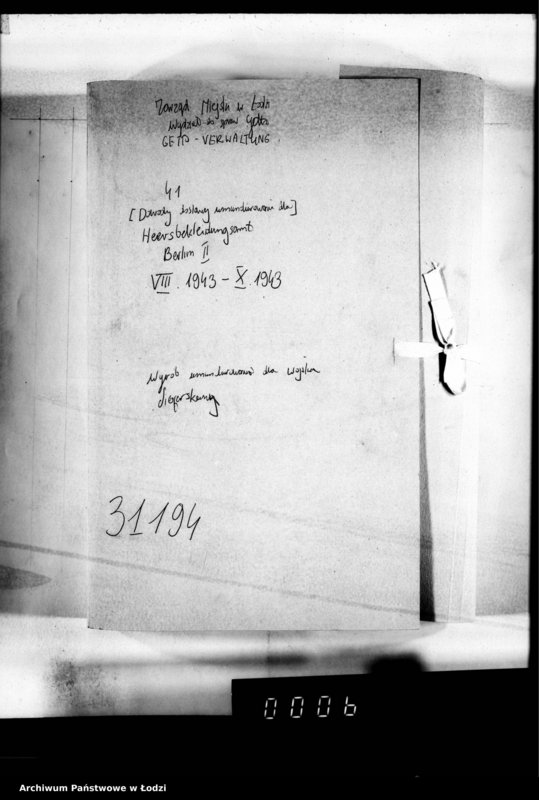 Zarząd Miejski w Łodzi
Wydział do spraw Getta
GETTO-VERWALTUNG.
41
[Dowody dostawy umundurowania dla]
Heeresbekleidungsamt
Berlin II
VIII. 1943 – X. 1943
Wyrób umundurowania dla wojska
31194
0006
Archiwum Państwowe w Łodzi